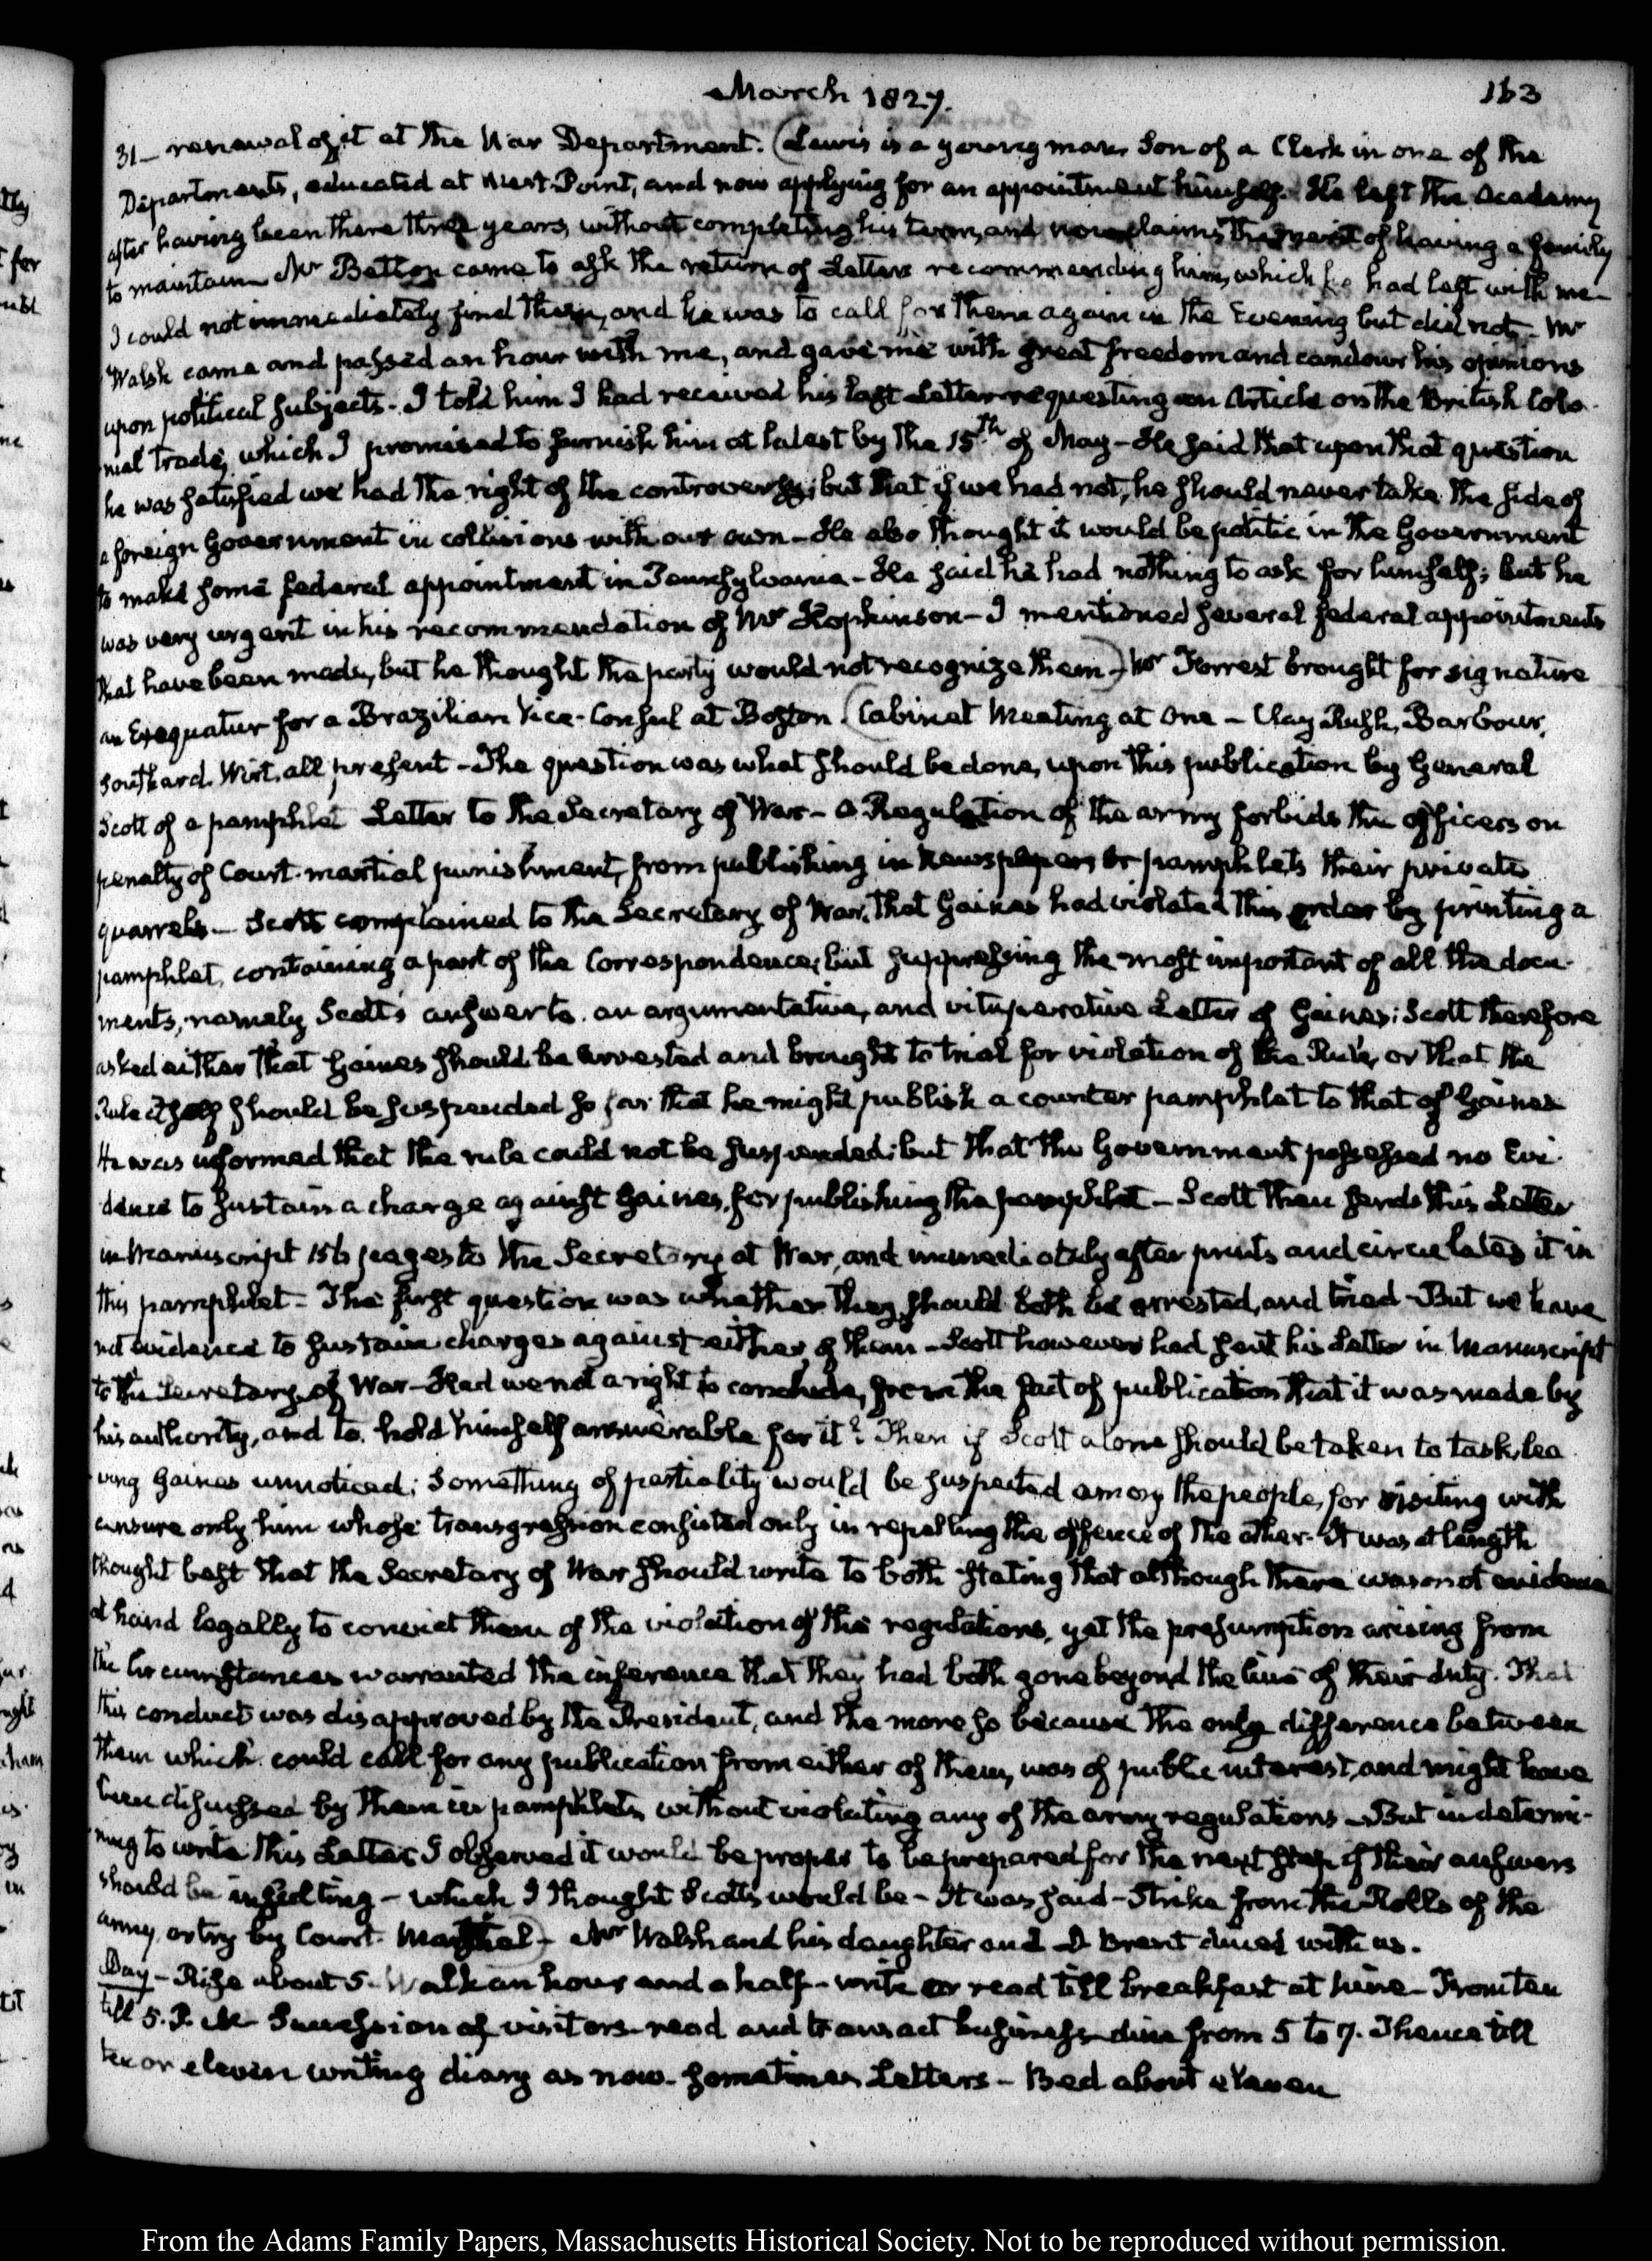 March 1827.
163
31- renewal of it at the War Department. (Lewis is a young man, Son of a Clerk in one of the
Departments, educated at West-Point, and now applying for an appointment himself. He left the Academy
after having been there three years, without completing his term, and now claims the merit of having a family
to maintain Mr Betton came to ask the return of Letters recommending him, which he had left with me-
I could not immediately find them, and he was to call for them again in the Evening but did not- Mr
Walsh came and passed an hour with me, and gave me with great freedom and candour his opinions
upon political subjects- I told him I had received his last Letter requesting an Article on the British Colo-
nial trade, which I promised to furnish him at latest by the 15th of May- He said that upon that question
he was satisfied we had the right of the controversy; but that if we had not, he should never take the side of
a foreign Government in collisions with our own- He also thought it would be politic in the Government
to make some federal appointment in Pennsylvania- He said he had nothing to ask for himself; but he
was very urgent in his recommendation of Mr Hopkinson- I mentioned several federal appointments
that have been made, but he thought the party would not recognize them-) Mr Forrest brought for signature
an Exequatur for a Brazilian Vice-Consul at Boston. (Cabinet Meeting at One- Clay Rush, Barbour,
Southard. Wirt, all present- The question was what should be done, upon this publication by General
Scott of a pamphlet Letter to the Secretary of War- a Regulation of the army forbids the officers on
penalty of Court-martial punishment, from publishing in Newspapers or pamphlets their private
quarrels- Scott complained to the Secretary of War, that Gaines had violated this order by printing a
pamphlet, containing a part of the Correspondence; but suppressing the most important of all the docu-
ments, namely Scott's answer to an argumentative, and vituperative Letter of Gaines: Scott therefore
asked either that Gaines should be arrested and brought to trial for violation of the Rule, or that the
Rule itself should be suspended so far that he might publish a counter pamphlet to that of Gaines
He was informed that the rule could not be suspended; but that the Government possessed no Evi-
dence to sustain a charge against Gaines, for publishing the pamphlet- Scott then sends this Letter
in Manuscript 156 pages to the Secretary at War, and immediately after prints and circulates it in
this pamphlet- The first question was whether they should both be arrested, and tried- But we have
not evidence to sustain charges against either of them- Scott however had sent his Letter in Manuscript
to the Secretary of War- Had we not a right to conclude, from the fact of publication that it was made by
his authority, and to hold himself answerable for it? Then if Scott alone should be taken to task, lea-
ving Gaines unnoticed; Something of partiality would be suspected among the people, for visiting with
censure only him whose transgression consisted only in repelling the offence of the other- It was at length
thought best that the Secretary of War should write to both stating that although there was not evidence
at hand legally to convict them of the violation of the regulations, yet the presumption arising from
the Circumstances warranted the inference that they had both gone beyond the line of their duty. That
this conduct was disapproved by the President, and the more so because the only difference between
them which could call for any publication from either of them, was of public interest, and might have
been discussed by them in pamphlets, without violating any of the army regulations- But in determi-
ning to write this Letter I observed it would be proper to be prepared for the next step if their answers
should be insulting- which I thought Scott's would be- It was said- Strike from the Rolls of the
army, or try by Court-Martial)- Mr Walsh and his daughter and D Brent dined with us.
Day- Rise about 5- Walk an hour and a half- write or read till breakfast at nine- From ten
till 5. P.M. Succession of visitors- read and transact business- dine from 5 to 7. Thence till
ten or eleven writing diary as now- sometimes Letters- Bed about eleven
From the Adams Family Papers, Massachusetts Historical Society. Not to be reproduced without permission.